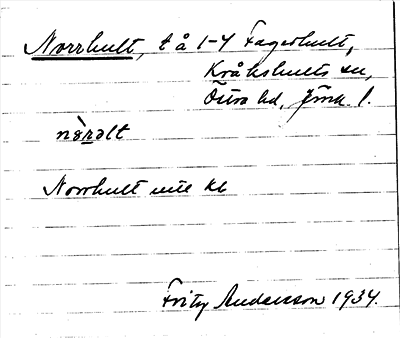 Norrhult, t å 1-4 Fagerhult,
Kråkshults sn,
Östra hd, Jönk. l.
nòralt
Norrhult
Fritz Andersson 1934.